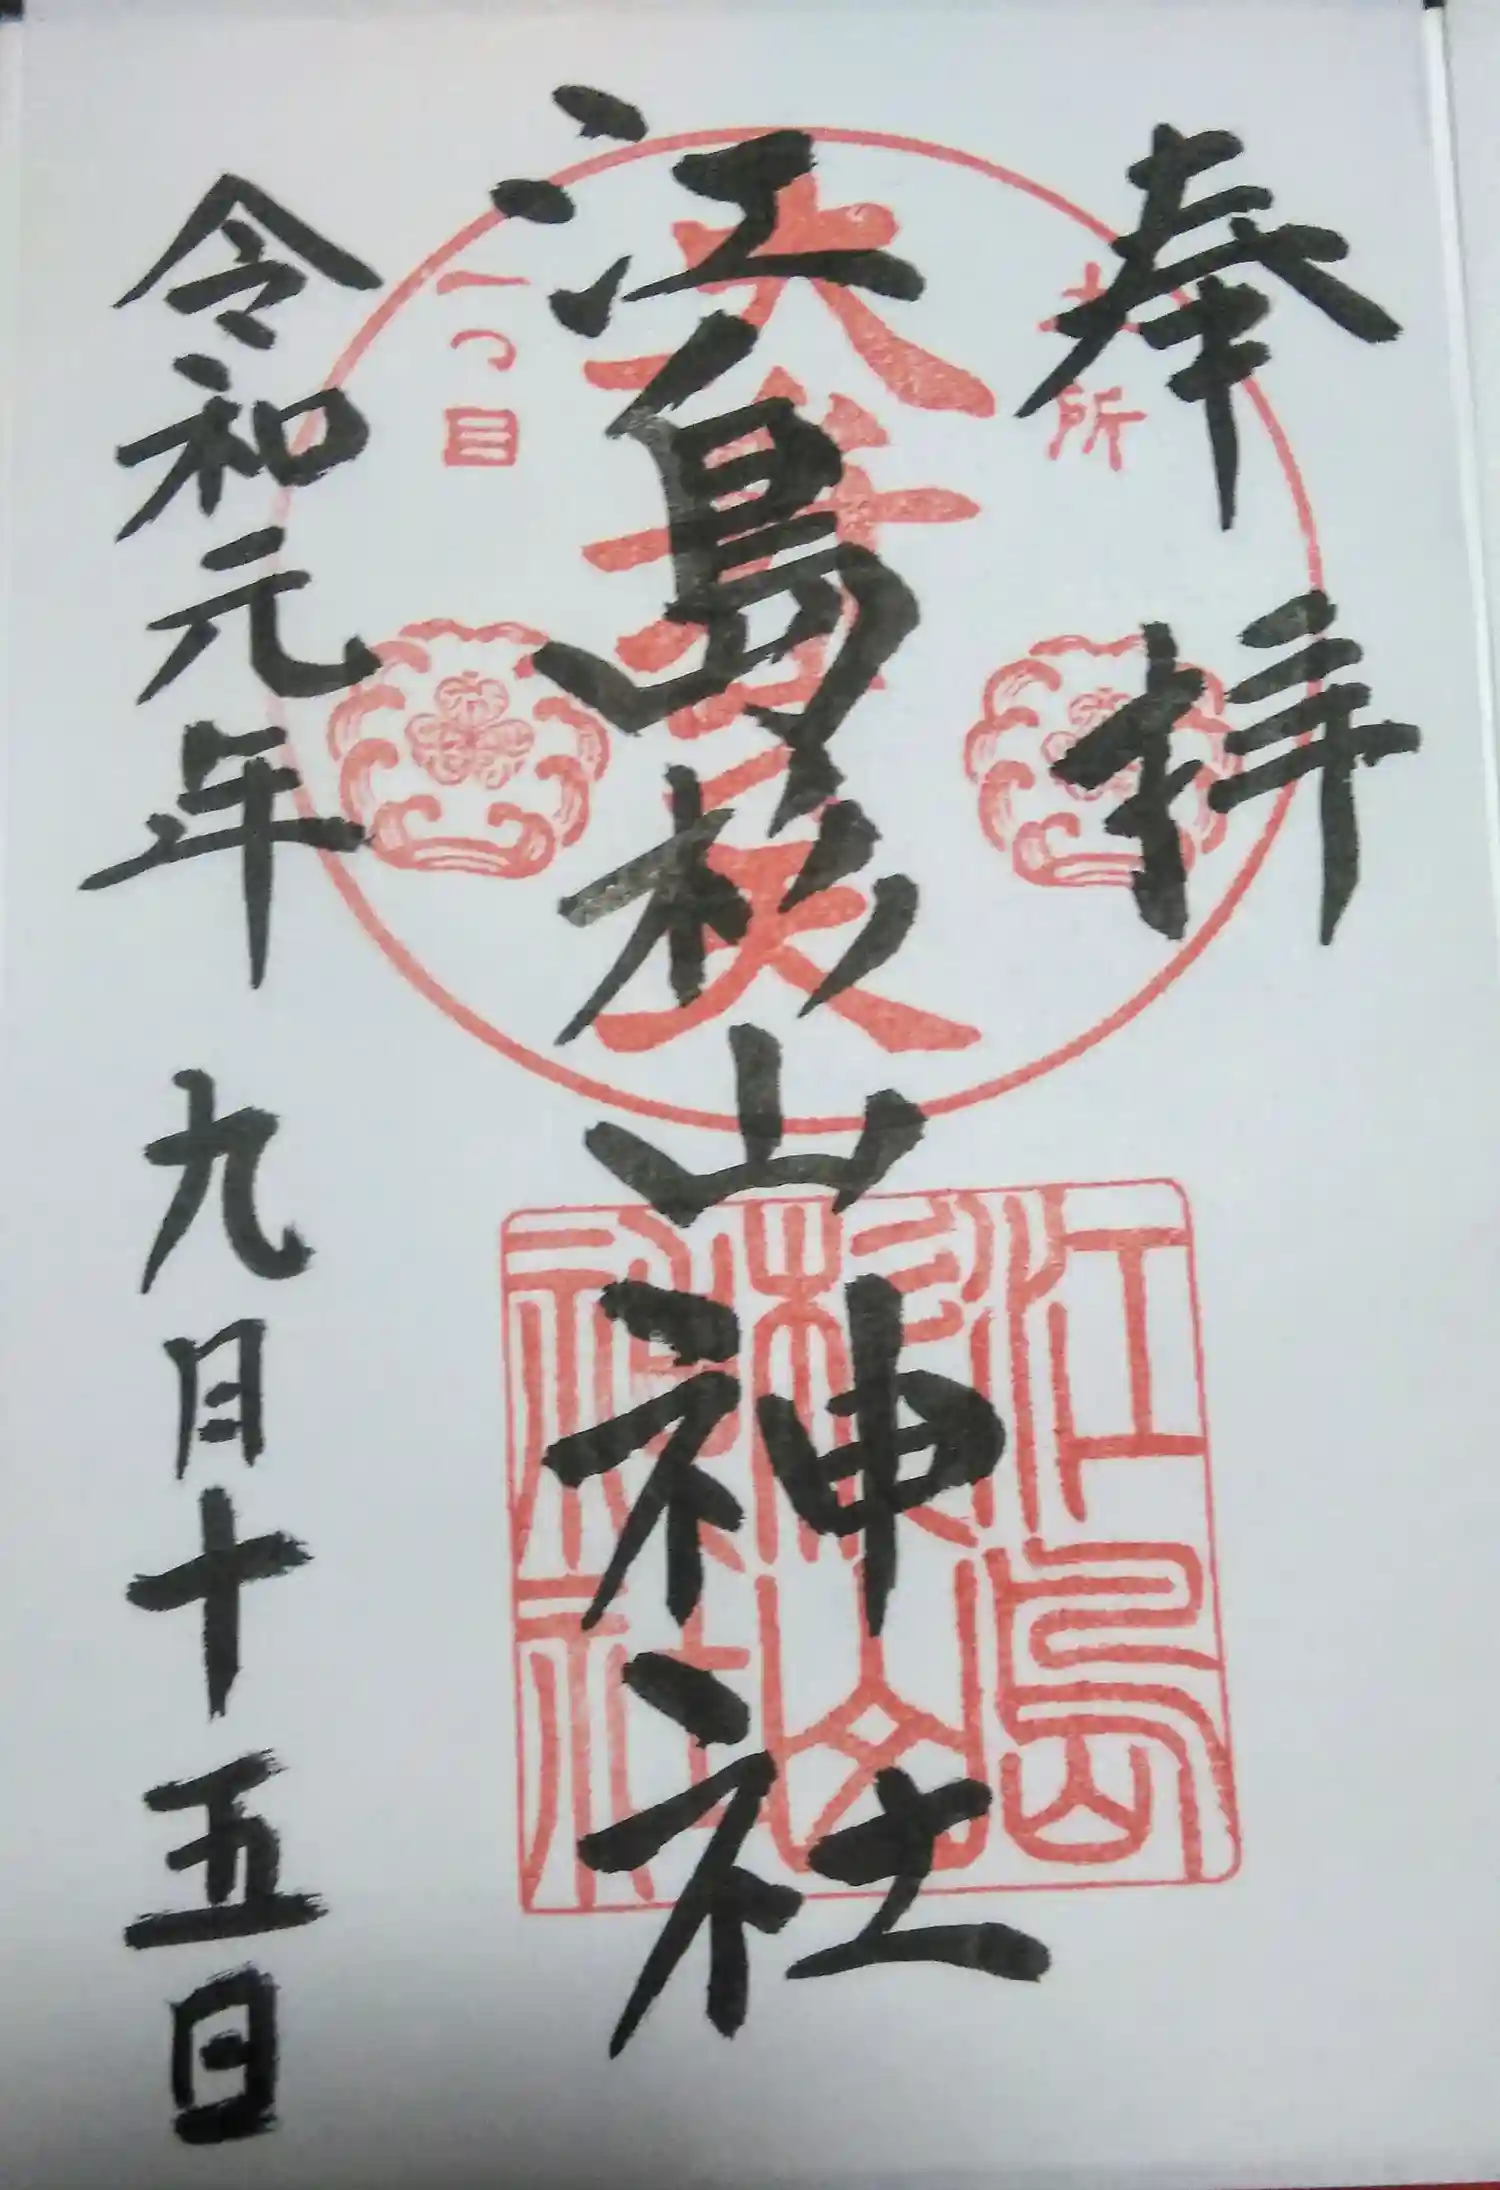 奉拝
江島杉山神社
令和元年九月十五日
本所
一つ目
江島
杉山
神社